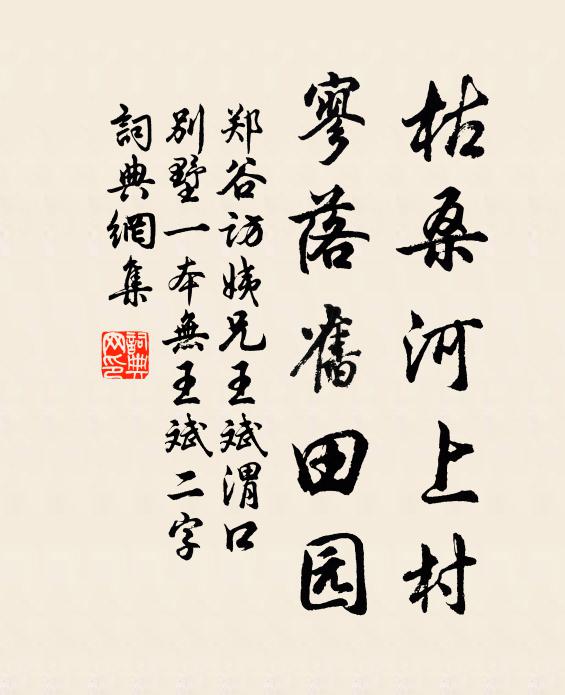 枯桑河上村
寥落舊田园
郑谷访姨兄王斌渭口
别墅一本無王斌二字
詞典網集
詞典
网印